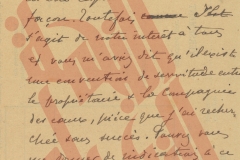 façon. Toutefois, comme il
s'agit de notre intérêt à tous
et vous m'avez dit qu'il existe
une convention de servitude entre
le propriétaire & la Compagnie
des eaux, pièce que j'ai recher-
chée sans succès. Pouvez vous
me donner des indications à ce